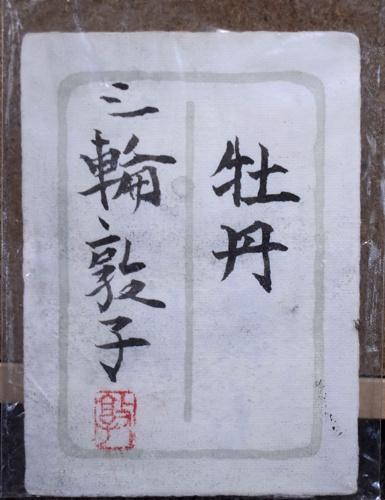 牡丹
三輪敦子
敦